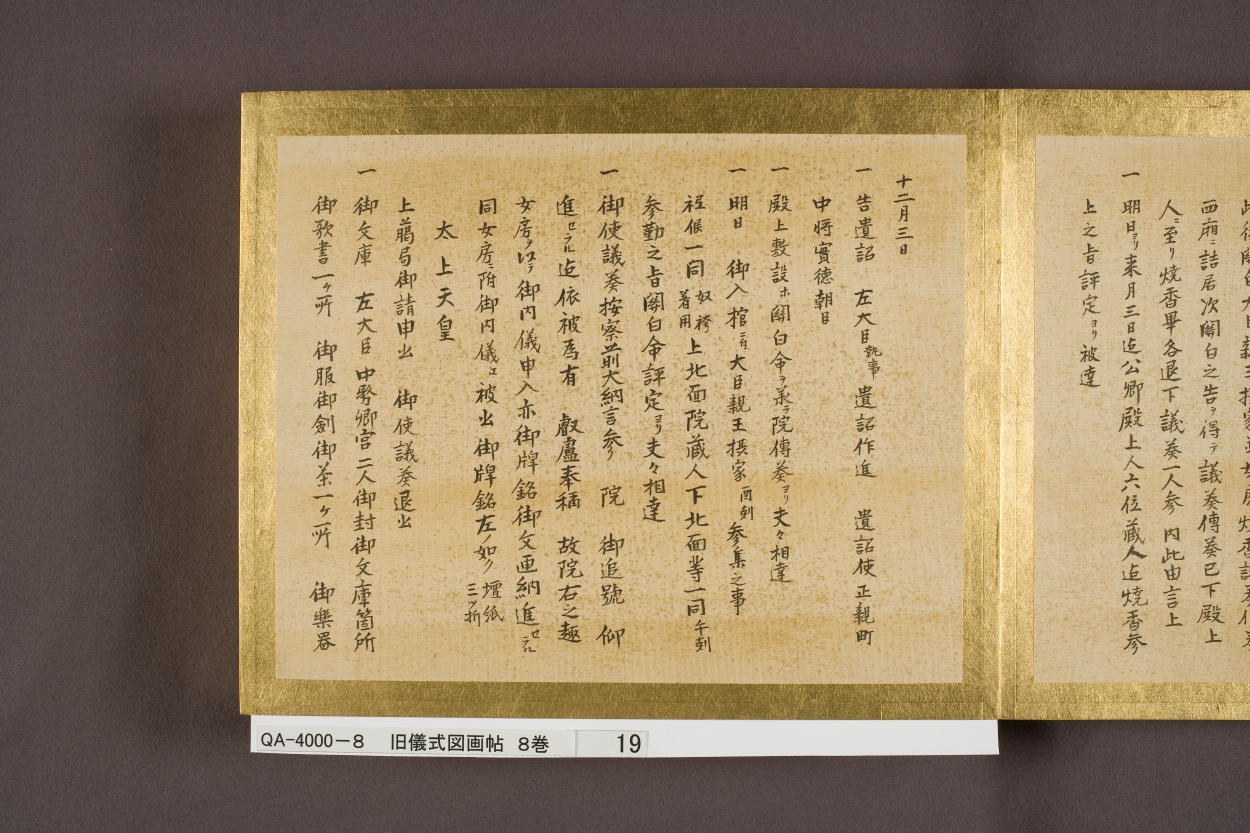 西廂ニ詰居次關白之告ヲ得テ議奏傳奏已下殿上
人ニ至リ焼香畢各退下議奏一人参 内此由言上
一 明日ヨリ来月三日迄公卿殿上人六位蔵人迄焼香参
上之旨評定ヨリ被達
十二月三日
一 告遺詔 左大臣執事 遺詔作進 遺詔使正親町
中将實徳朝臣
一 殿上敷設ホ關白命ヲ承テ院傳奏ヨリ夫々相達
一 明日 御入棺ニ付大臣親王摂家酉刻参集之事
祗候一同奴袴着用上北面院蔵人下北面等一同午刻
参勤之旨關白命評定ヨリ夫々相達
一 御使議奏按察前大納言参 院 御追號 仰
進セラル迄依被為有 叡慮奉稱 故院右之趣
女房ヲ以テ御内儀申入亦御牌銘御文匣納進セラル
同女房ニ附御内儀エ被出御牌銘左ノ如ク壇紙三ツ折
太上天皇
上﨟局御請申出 御使議奏退出
一 御文庫 左大臣 中務卿宮二人御封御文庫箇所
御歌書一ケ所 御服御劍御茶一ケ所 御樂器
QA-4000-8 旧儀式図画帖 8巻 19